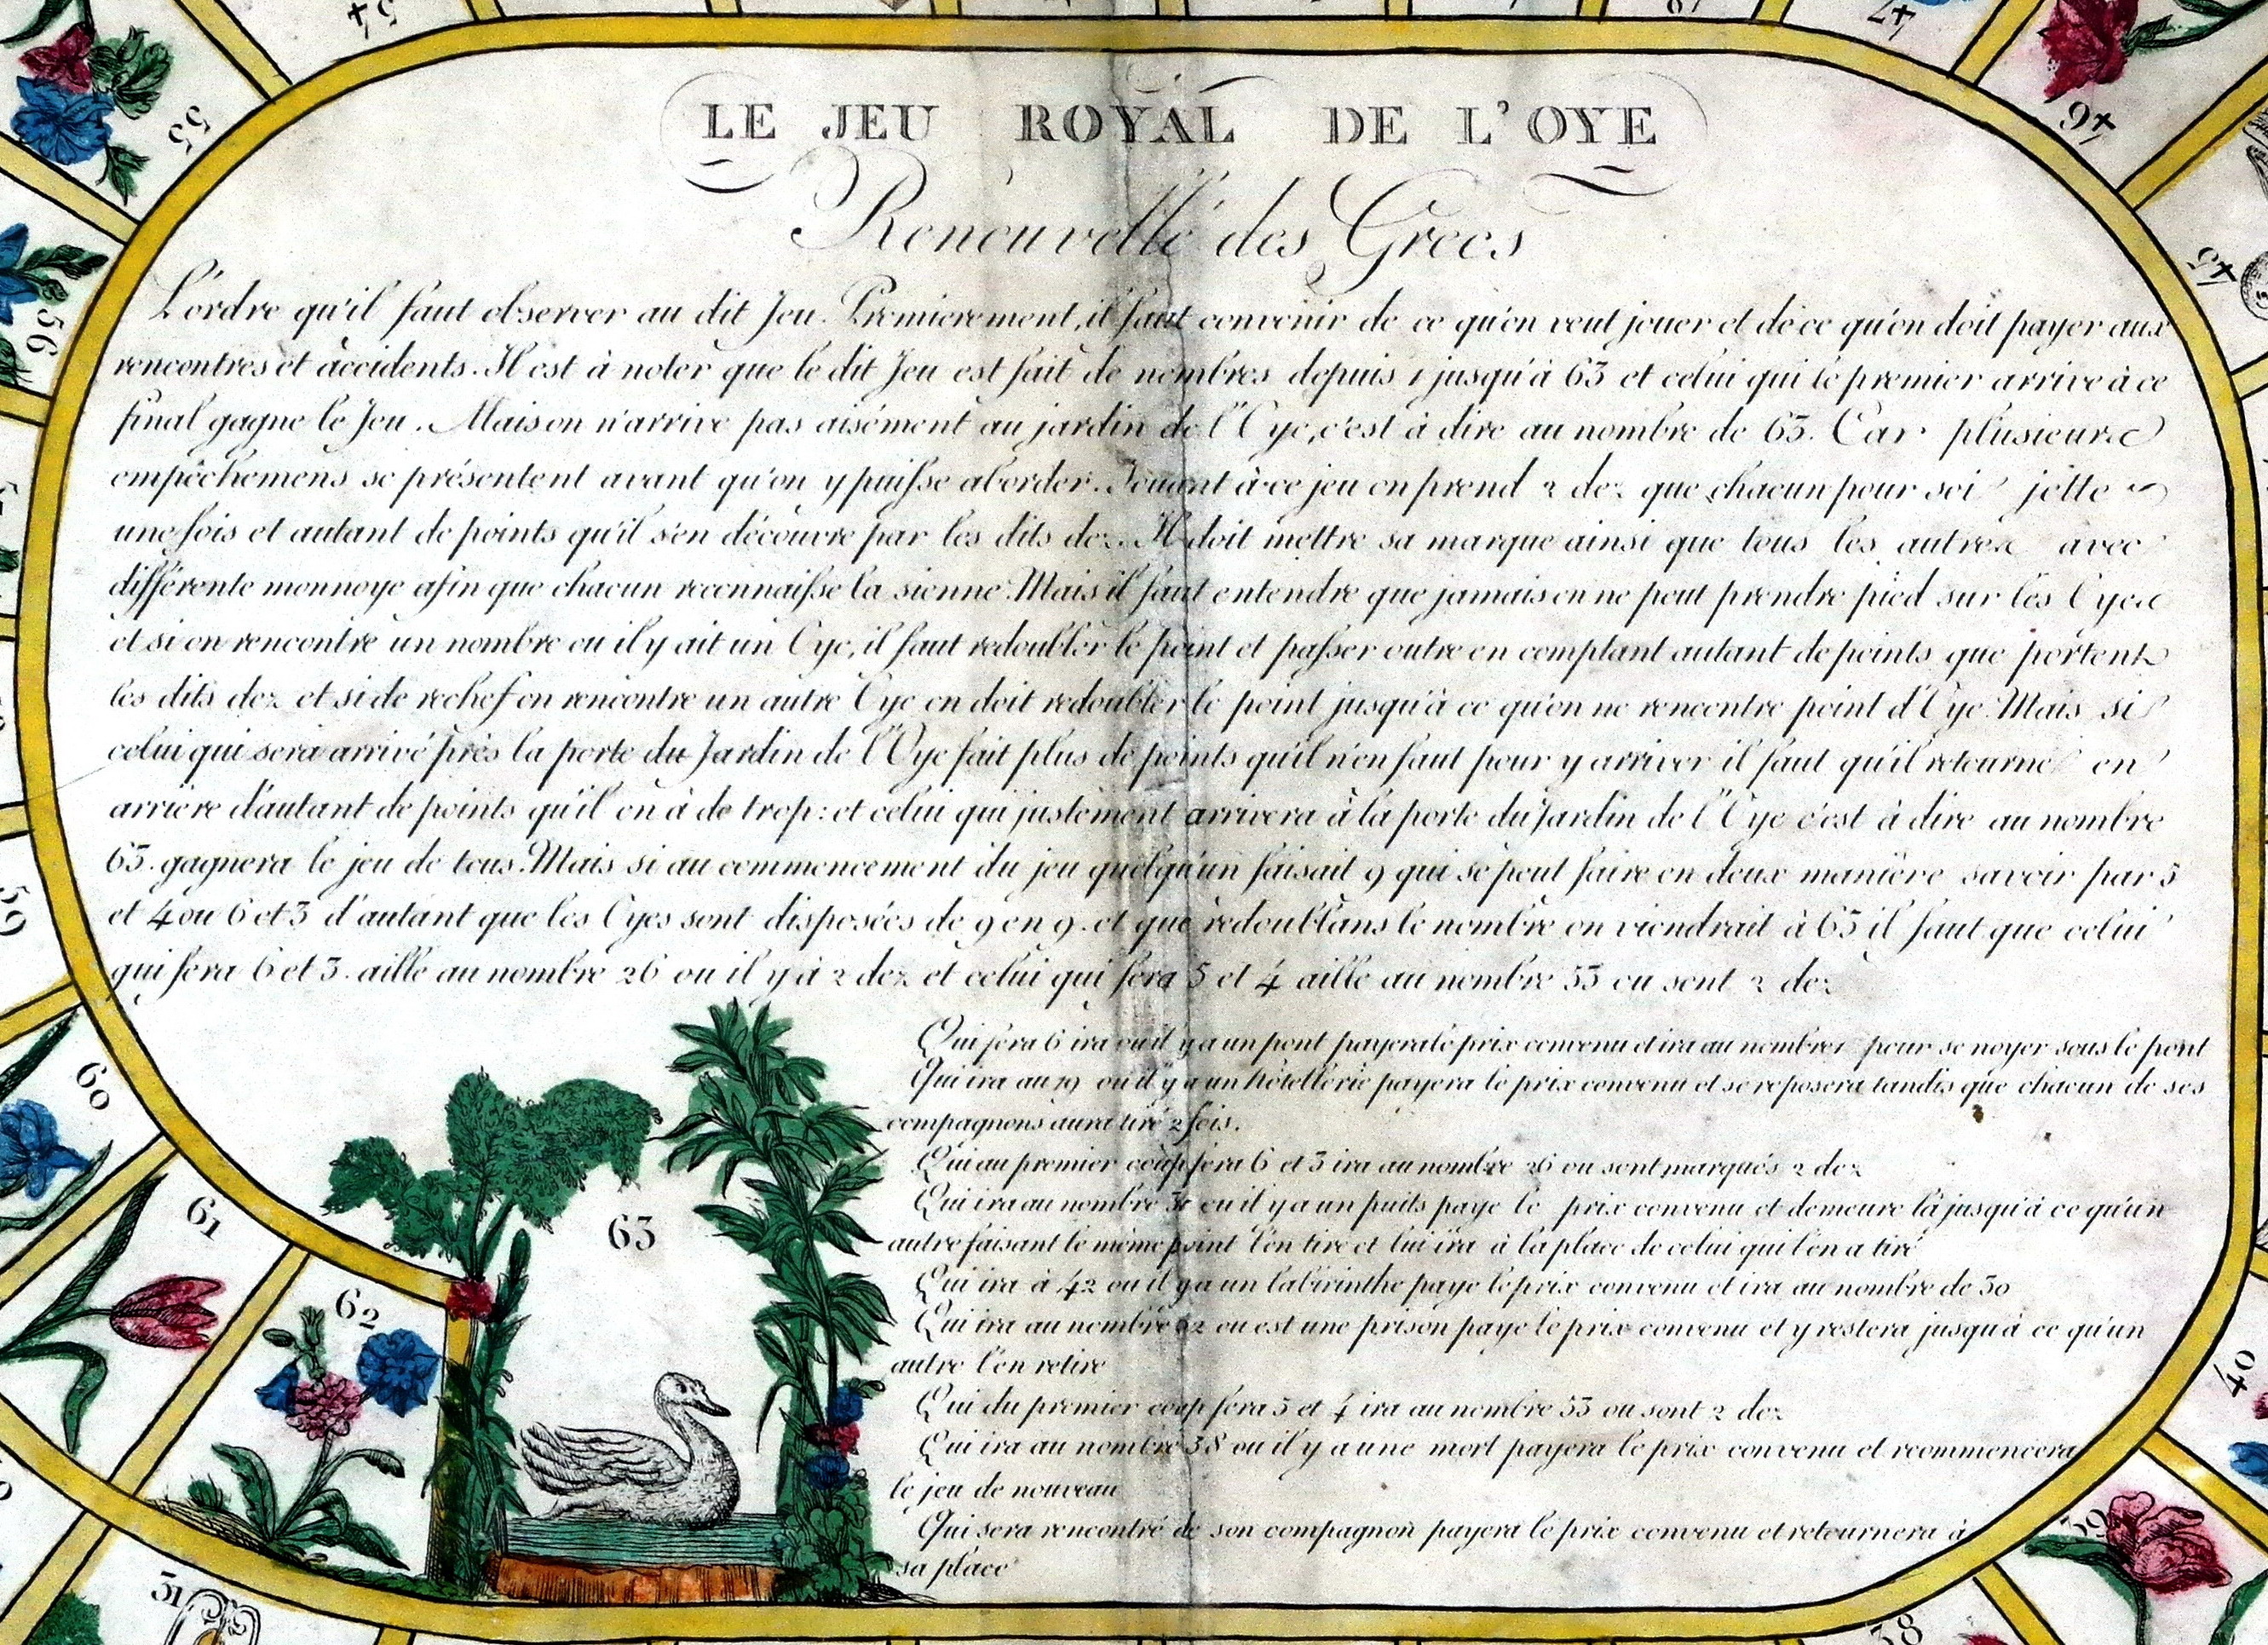 LE JEU ROYAL DE L'OYE
Renouvellé des Grecs
L'ordre qu'il faut observer au dit Jeu. Premierement, il faut convenir de ce qu'on veut jouer et de ce qu'on doit payer aux
rencontres et accidents. Il est à noter que le dit Jeu est fait de nombres depuis 1 jusqu'à 63 et celui qui le premier arrive à ce
final gagne le Jeu. Mais on n'arrive pas aisément au jardin de l'Oye, c'est à dire au nombre de 63. Car plusieurs
empêchemens se présentent avant qu'on y puisse aborder. Jouant à ce jeu on prend 2 dez que chacun pour soi jette
une fois et autant de points qu'il s'en découvre par les dits dez. Il doit mettre sa marque ainsi que tous les autres avec
différente monnoye afin que chacun reconnaisse la sienne. Mais il faut entendre que jamais on ne peut prendre pied sur les Oyes
et si on rencontre un nombre ou il y ait un Oye, il faut redoubler le point et passer outre en comptant autant de points que portent
les dits dez et si de rechef on rencontre un autre Oye on doit redoubler le point jusqu'à ce qu'on ne rencontre point d'Oye. Mais si
celui qui sera arrivé près la porte du Jardin de l'Oye fait plus de points qu'il n'en faut pour y arriver il faut qu'il retourne en
arrière d'autant de points qu'il en à de trop : et celui qui justement arrivera à la porte du Jardin de l'Oye c'est à dire au nombre
63. gagnera le jeu de tous. Mais si au commencement du jeu quelqu'un faisait 9 qui se peut faire en deux manière savoir par 5
et 4 ou 6 et 3 d'autant que les Oyes sont disposées de 9 en 9. et que redoublans le nombre on viendrait à 63 il faut que celui
qui fera 6 et 3. aille au nombre 26 ou il y à 2 dez et celui qui fera 5 et 4 aille au nombre 53 ou sont 2 dez
Qui fera 6 ira ou il y a un pont payera le prix convenu et ira au nombre pour se noyer sous le pont
Qui ira au 19 ou il y a un hôtellerie payera le prix convenu et se reposera tandis que chacun de ses
compagnons aura tiré 2 fois.
Qui au premier coup fera 6 et 3 ira au nombre 26 ou sont marqués 2 dez
Qui ira au nombre 31 ou il y a un puits paye le prix convenu et demeure là jusqu'à ce qu'un
autre faisant le même point l'en tire et lui ira à la place de celui qui l'en a tiré
Qui ira à 42 ou il y a un labirinthe paye le prix convenu et ira au nombre de 30
Qui ira au nombre 52 ou est une prison paye le prix convenu et y restera jusqu'à ce qu'un
autre l'en retire
Qui du premier coup fera 5 et 4 ira au nombre 53 ou sont 2 dez
Qui ira au nombre 58 ou il y a une mort payera le prix convenu et recommencera
le jeu de nouveau
Qui sera rencontré de son compagnon payera le prix convenu et retournera à
sa place
63
54
55
56
59
60
61
62
31
38
39
40
45
46
47